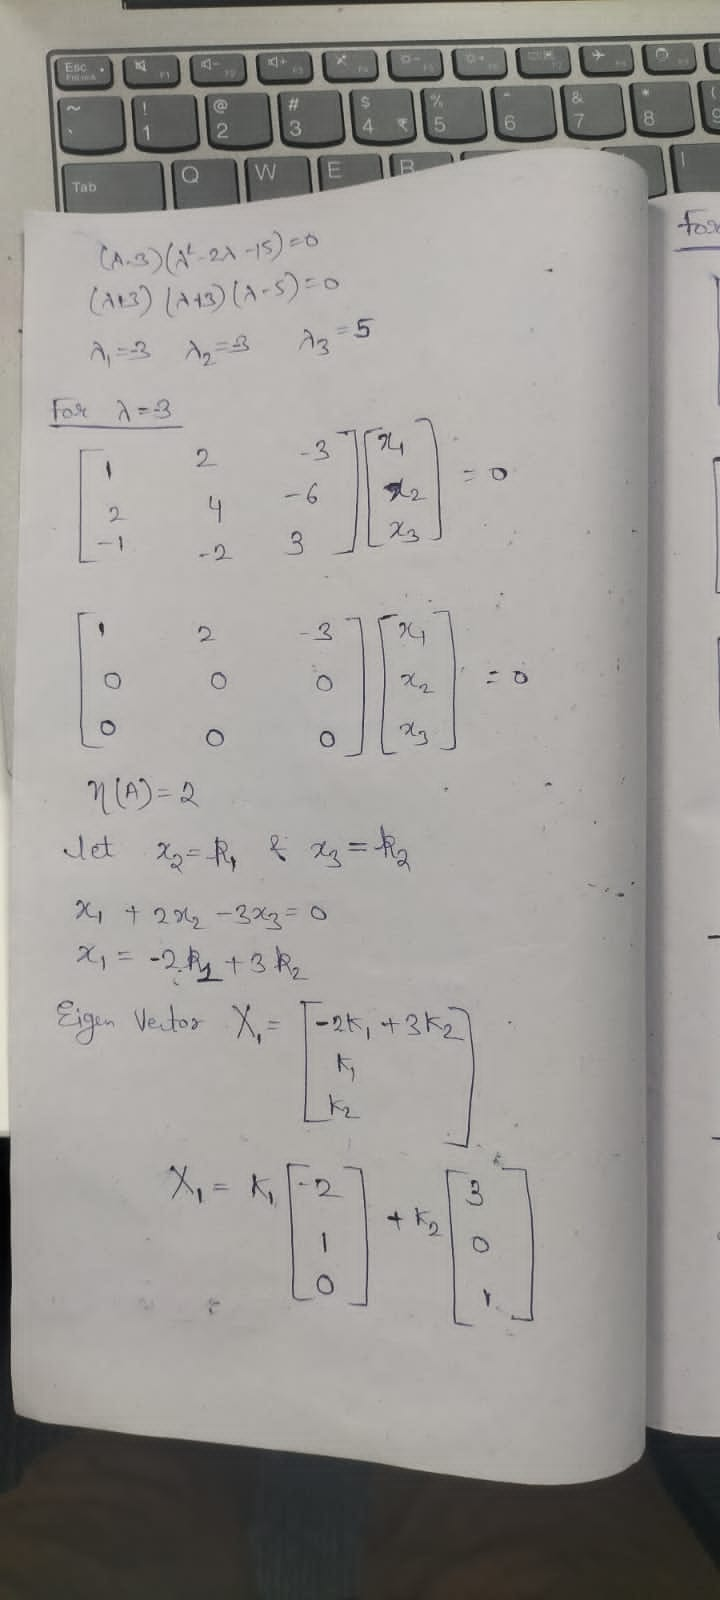 Esc
FnLock
F1
F2
F3
F4
F5
F6
F7
F8
~ ! @ # $ % & *
` 1 2 3 4 ₹ 5 6 7 8 9
Tab Q W E R I
(λ-3)(λ²-2λ-15)=0
(λ+3)(λ+3)(λ-5)=0
λ₁=-3 λ₂=-3 λ₃=5
For λ=-3
[1 2 -3] [x₁]
[2 4 -6] [x₂] =0
[-1 -2 3] [x₃]
[1 2 -3] [x₁]
[0 0 0] [x₂] =0
[0 0 0] [x₃]
η(A)=2
let x₂=k₁ & x₃=k₂
x₁+2x₂-3x₃=0
x₁=-2k₁+3k₂
Eigen Vector X₁= [-2k₁+3k₂]
[k₁]
[k₂]
X₁= k₁ [-2] + k₂ [3]
[1] [0]
[0] [1]
For